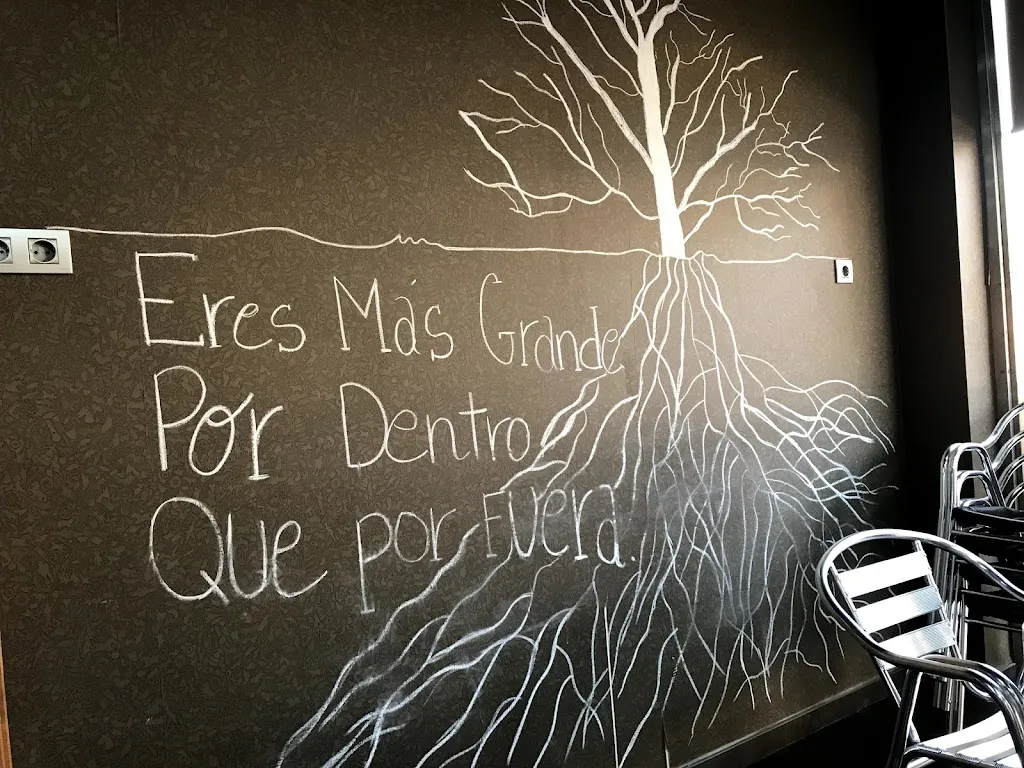 Eres Más Grande
Por Dentro
Que por Fuera.